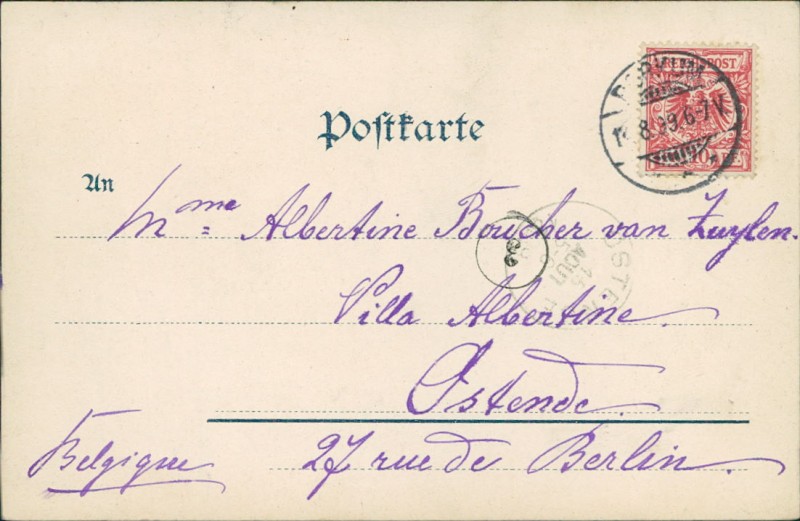 REICHSPOST
BORKUM
8.99.6-7V
Postkarte
An
Mme Albertine Boucher van Zuylen.
OSTEN
15
AOUT
Villa Albertine.
Ostende.
Belgique 27 rue de Berlin.